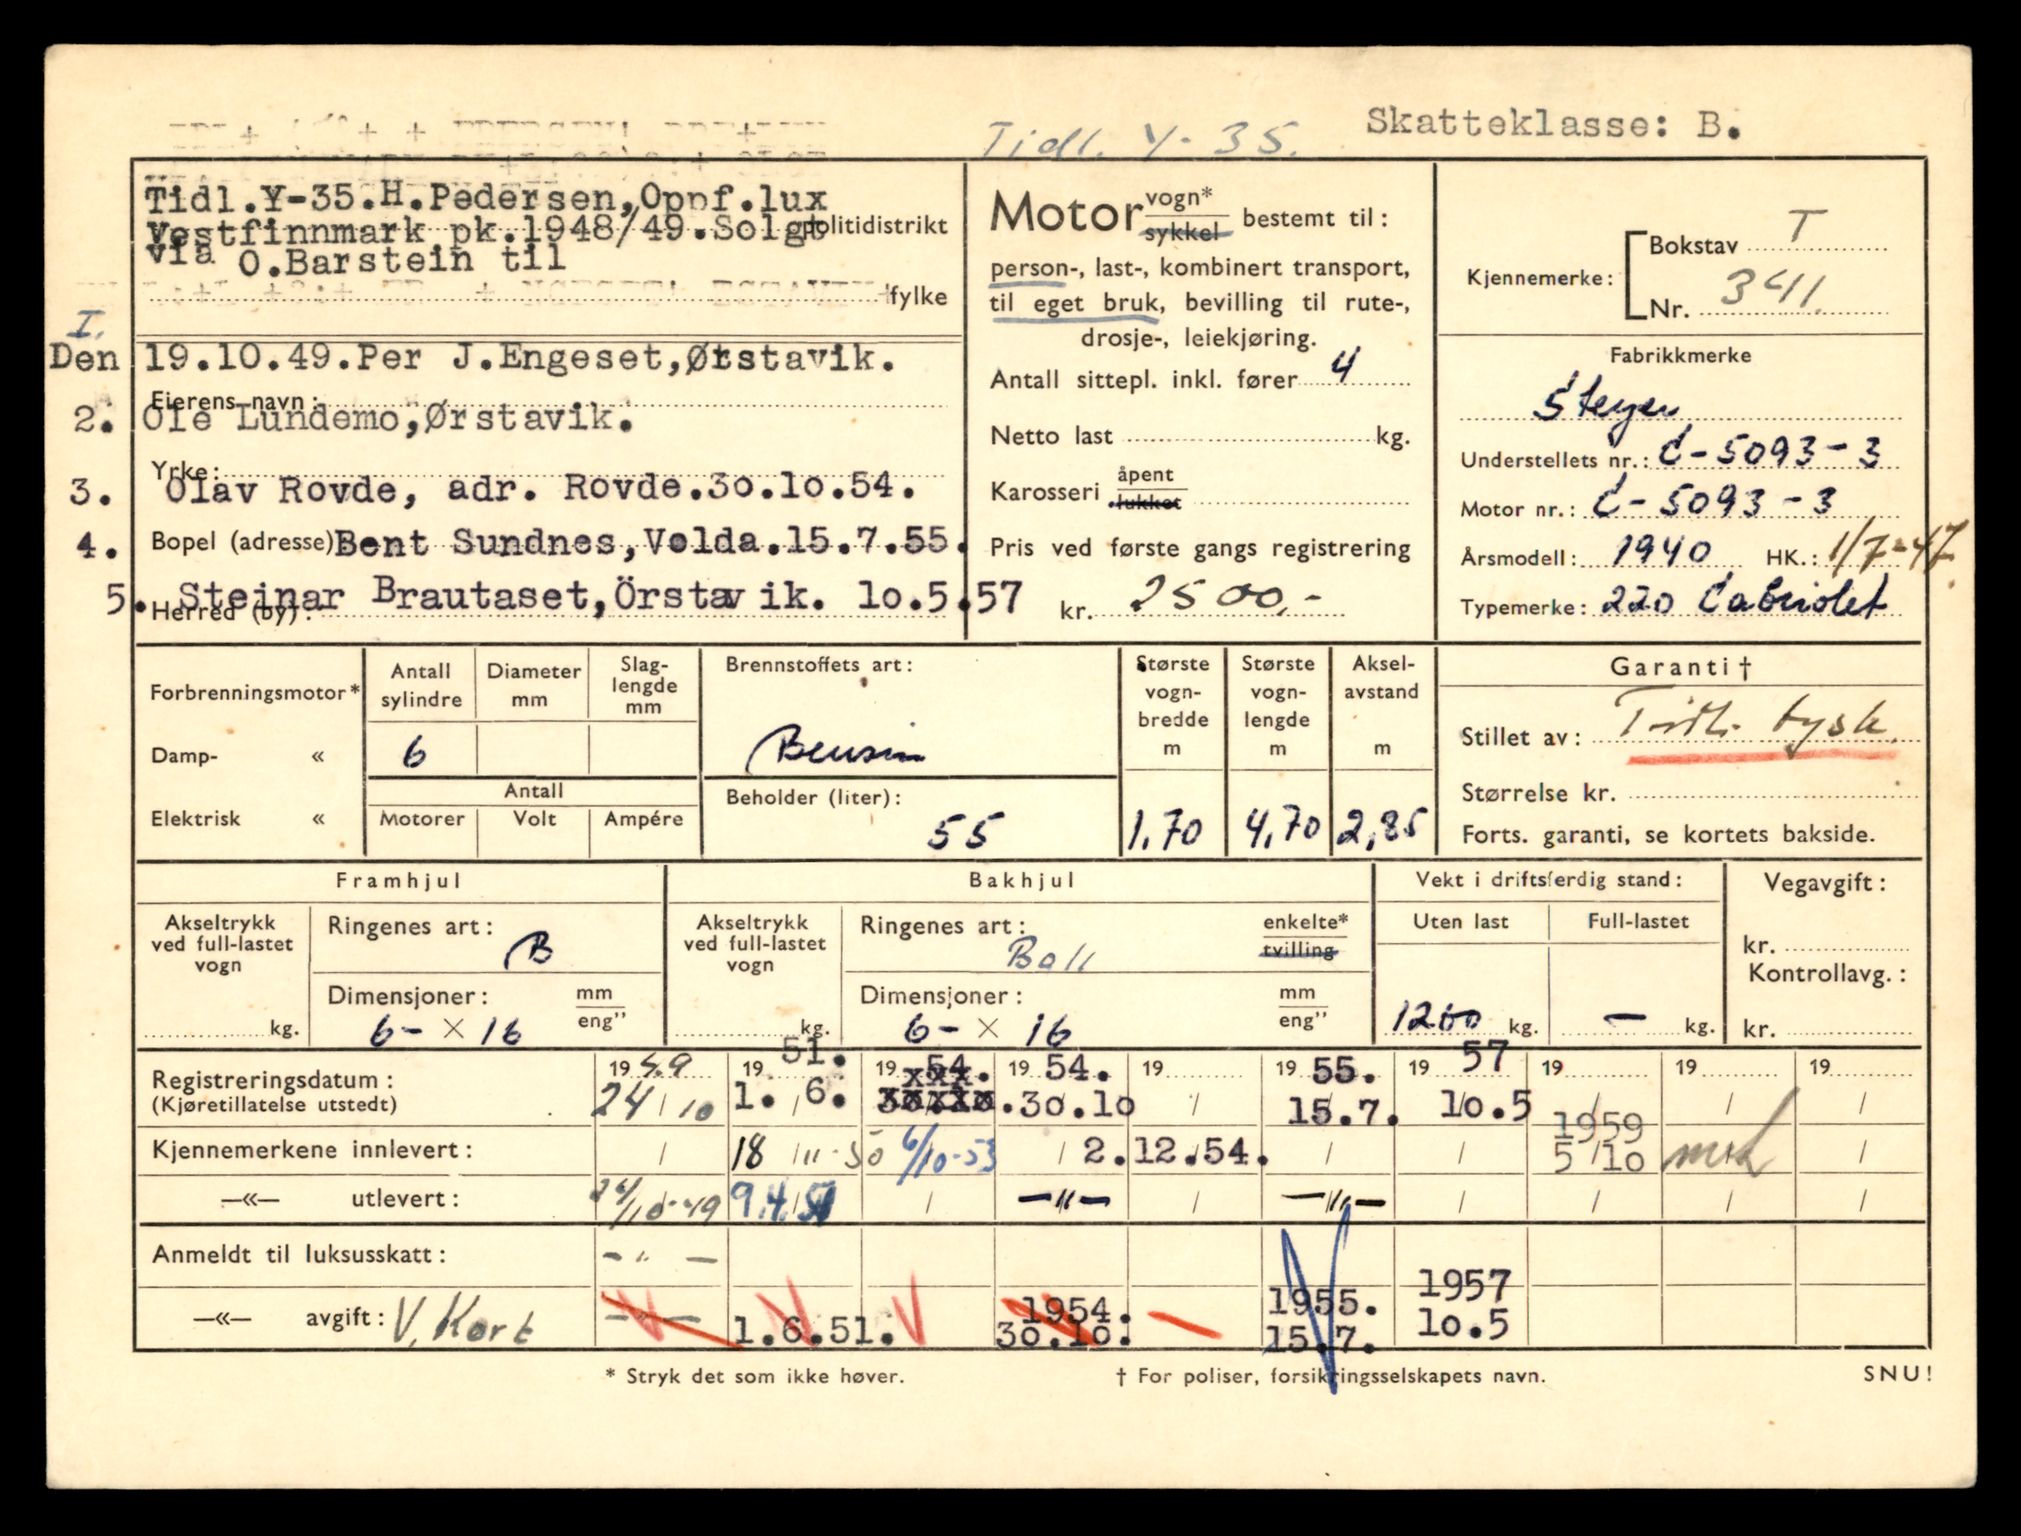 Skatteklasse: B.
Tidl. Y-35.
Tidl.Y-35.H.Pedersen,Oppf.lux
Vestfinnmark pk.1948/49.Solgt politidistrikt
via O.Barstein til
fylke
I.
Den 19.10.49.Per J.Engeset,Ørstavik.
Eierens navn:
2. Ole Lundemo,Ørstavik.
Yrke:
3. Olav Rovde, adr. Rovde.30.10.54.
4. Bopel (adresse) Bent Sundnes,Volda.15.7.55.
5. Steinar Brautaset,Örstavik. 10.5.57
Herred (by):
Motor vogn* sykkel bestemt til:
person-, last-, kombinert transport,
til eget bruk, bevilling til rute-,
drosje-, leiekjøring.
Antall sittepl. inkl. fører 4
Netto last kg.
Karosseri åpent lukket
Pris ved første gangs registrering
kr. 2500,-
Kjennemerke: Bokstav T
Nr. 341.
Fabrikkmerke
Steyer
Understellets nr.: C-5093-3
Motor nr.: C-5093-3
Årsmodell: 1940 HK.: 1/7-47
Typemerke: 220 Cabriolet
Forbrenningsmotor*
Damp- «
Elektrisk «
Antall sylindre
Diameter mm
Slaglengde mm
6
Antall
Motorer Volt Ampére
Brennstoffets art:
Bensin
Beholder (liter):
55
Største vogn-bredde m
1,70
Største vogn-lengde m
4,70
Aksel-avstand m
2,85
Garanti †
Stillet av: Tidl. tysk.
Størrelse kr.
Forts. garanti, se kortets bakside.
Framhjul
Akseltrykk
ved full-lastet
vogn
kg.
Ringenes art: B
Dimensjoner: mm eng"
6- × 16
Bakhjul
Akseltrykk
ved full-lastet
vogn
kg.
Ringenes art: Ball
enkelte*
tvilling
Dimensjoner: mm eng"
6- × 16
Vekt i driftsferdig stand:
Uten last Full-lastet
1200 kg. - kg.
Vegavgift:
kr.
Kontrollavg.:
kr.
Registreringsdatum: 19 49 19 51. 19 54. 19 54. 19 19 55. 19 57 19 19 19
(Kjøretillatelse utstedt) 24/10 1. 6. 30.10. 30.10 / 15.7. 10.5 / / /
Kjennemerkene innlevert: / 18/11-50 6/10-53 / 2.12.54. / / 1959 5/10 /
—«— utlevert: 24/10-49 9.4.51 / —"— / —"— / / / /
Anmeldt til luksusskatt: - " -
—«— avgift: V. Kort 1.6.51. 1954. 30.10. 1955. 15.7. 1957 10.5
* Stryk det som ikke høver.
† For poliser, forsikringsselskapets navn.
SNU!